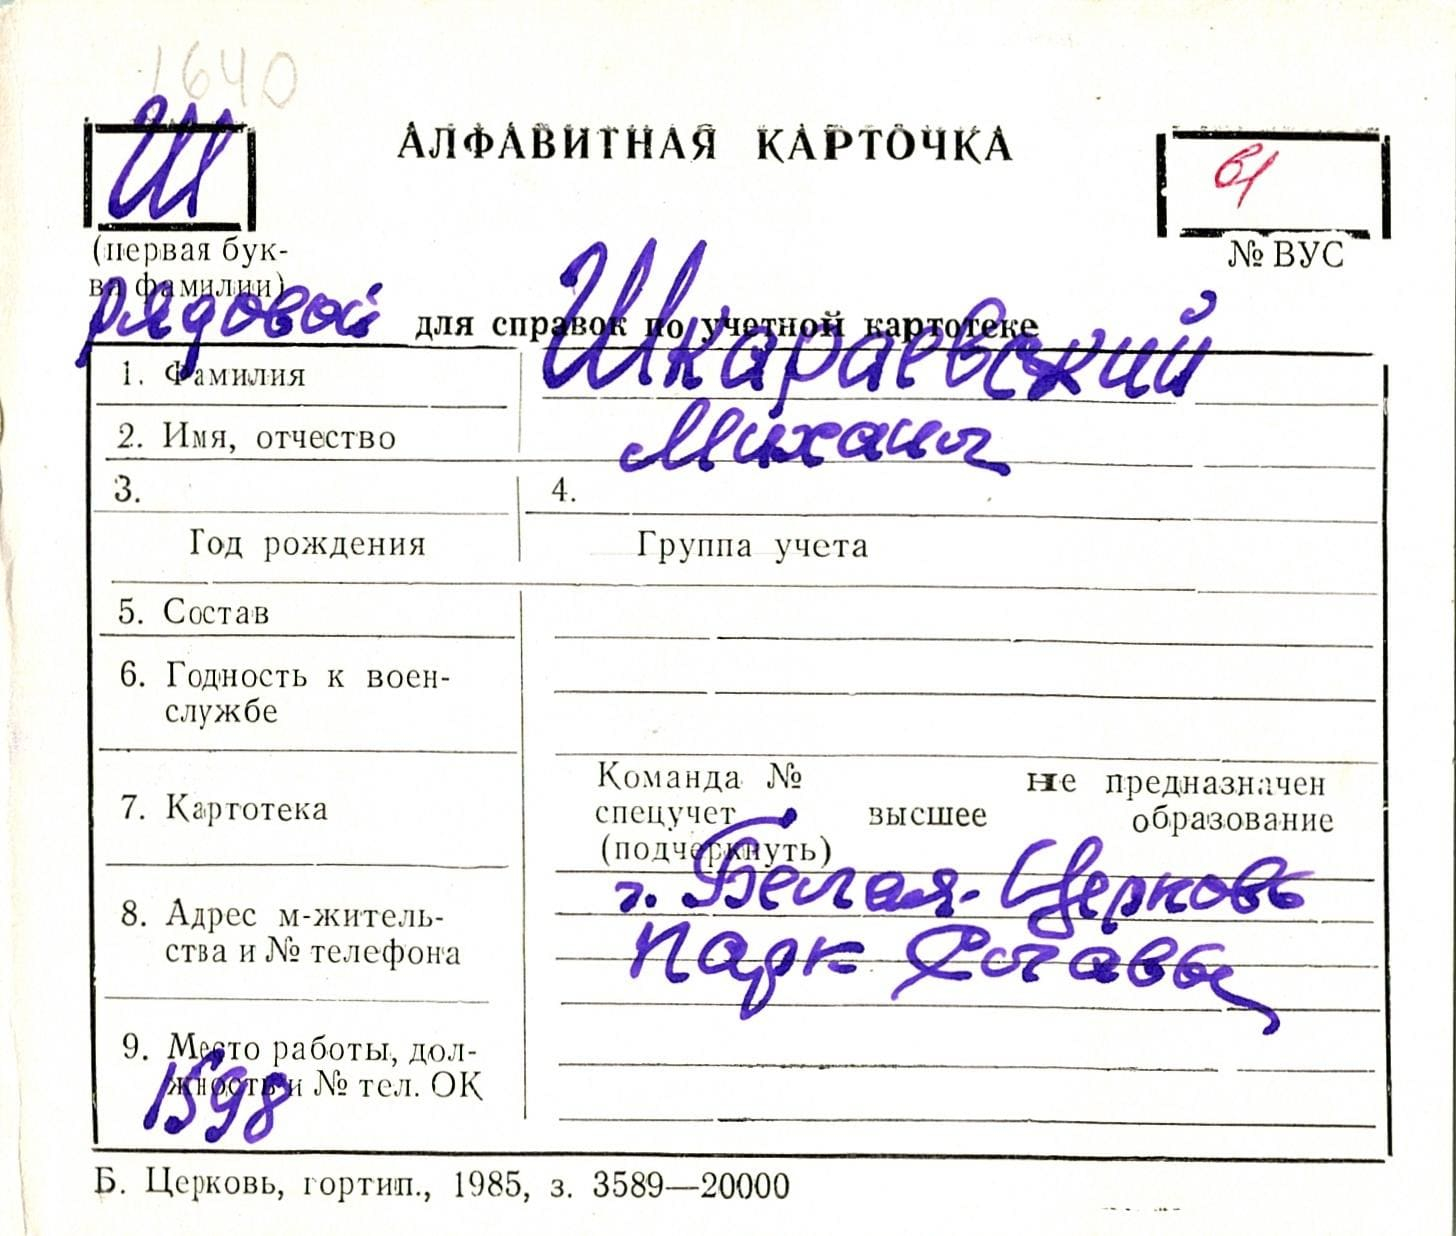 1640
Ш
АЛФАВИТНАЯ КАРТОЧКА
61
(первая бук-
ва фамилии)
№ ВУС
рядовой
для справок по учетной картотеке
1. Фамилия
Шкараевский
2. Имя, отчество
Михаил
3.
4.
Год рождения
Группа учета
5. Состав
6. Годность к воен-
службе
7. Картотека
Команда №
не предназначен
спецучет
высшее
образование
(подчеркнуть)
8. Адрес м-житель-
ства и № телефона
г. Белая-Церковь
парк Славы
9. Место работы, дол-
жность и № тел. ОК
1598
Б. Церковь, гортип., 1985, з. 3589—20000